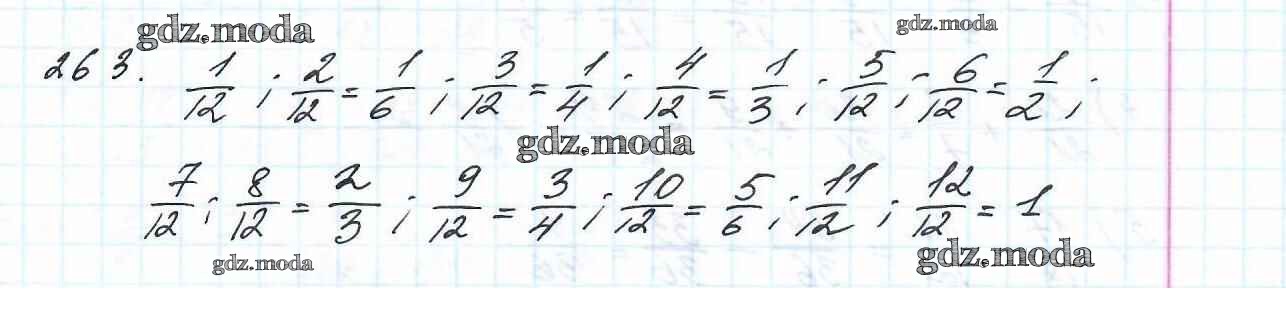 gdz.moda gdz.moda
263. 1/12 ; 2/12 = 1/6 ; 3/12 = 1/4 ; 4/12 = 1/3 ; 5/12 ; 6/12 = 1/2 ;
gdz.moda
7/12 ; 8/12 = 2/3 ; 9/12 = 3/4 ; 10/12 = 5/6 ; 11/12 ; 12/12 = 1
gdz.moda gdz.moda